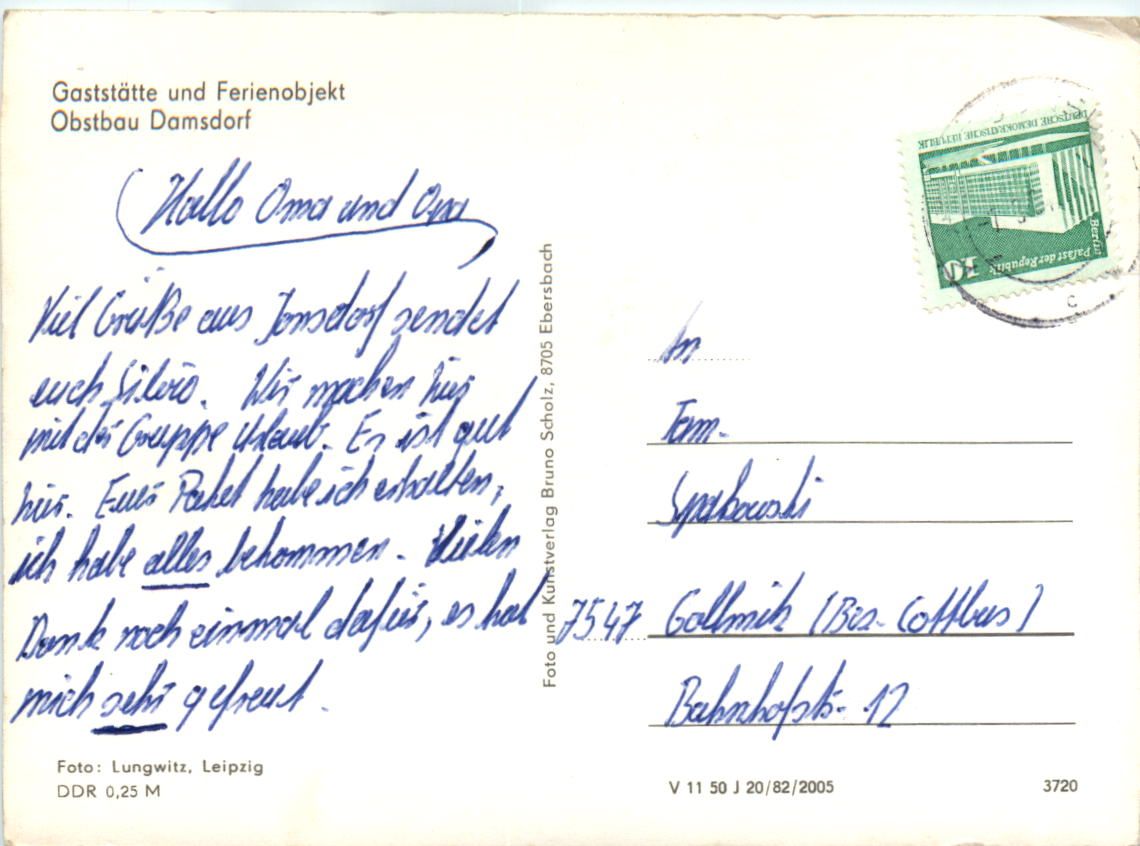 Gaststätte und Ferienobjekt
Obstbau Damsdorf
Hallo Oma und Opa
Viel Grüße aus Jonsdorf sendet
euch Silvio. Wir machen hier
mit der Gruppe Urlaub. Es ist gut
hier. Euer Paket habe ich erhalten,
ich habe alles bekommen. Vielen
Dank noch einmal dafür, es hat
mich sehr gefreut.
Foto: Lungwitz, Leipzig
DDR 0,25 M
Foto und Kunstverlag Bruno Scholz, 8705 Ebersbach
DEUTSCHE DEMOKRATISCHE REPUBLIK
Berlin
Palast der Republik
10
c
An
Fam.
Spakowski
7547 Gollmitz (Bez. Cottbus)
Bahnhofstr. 12
V 11 50 J 20/82/2005
3720